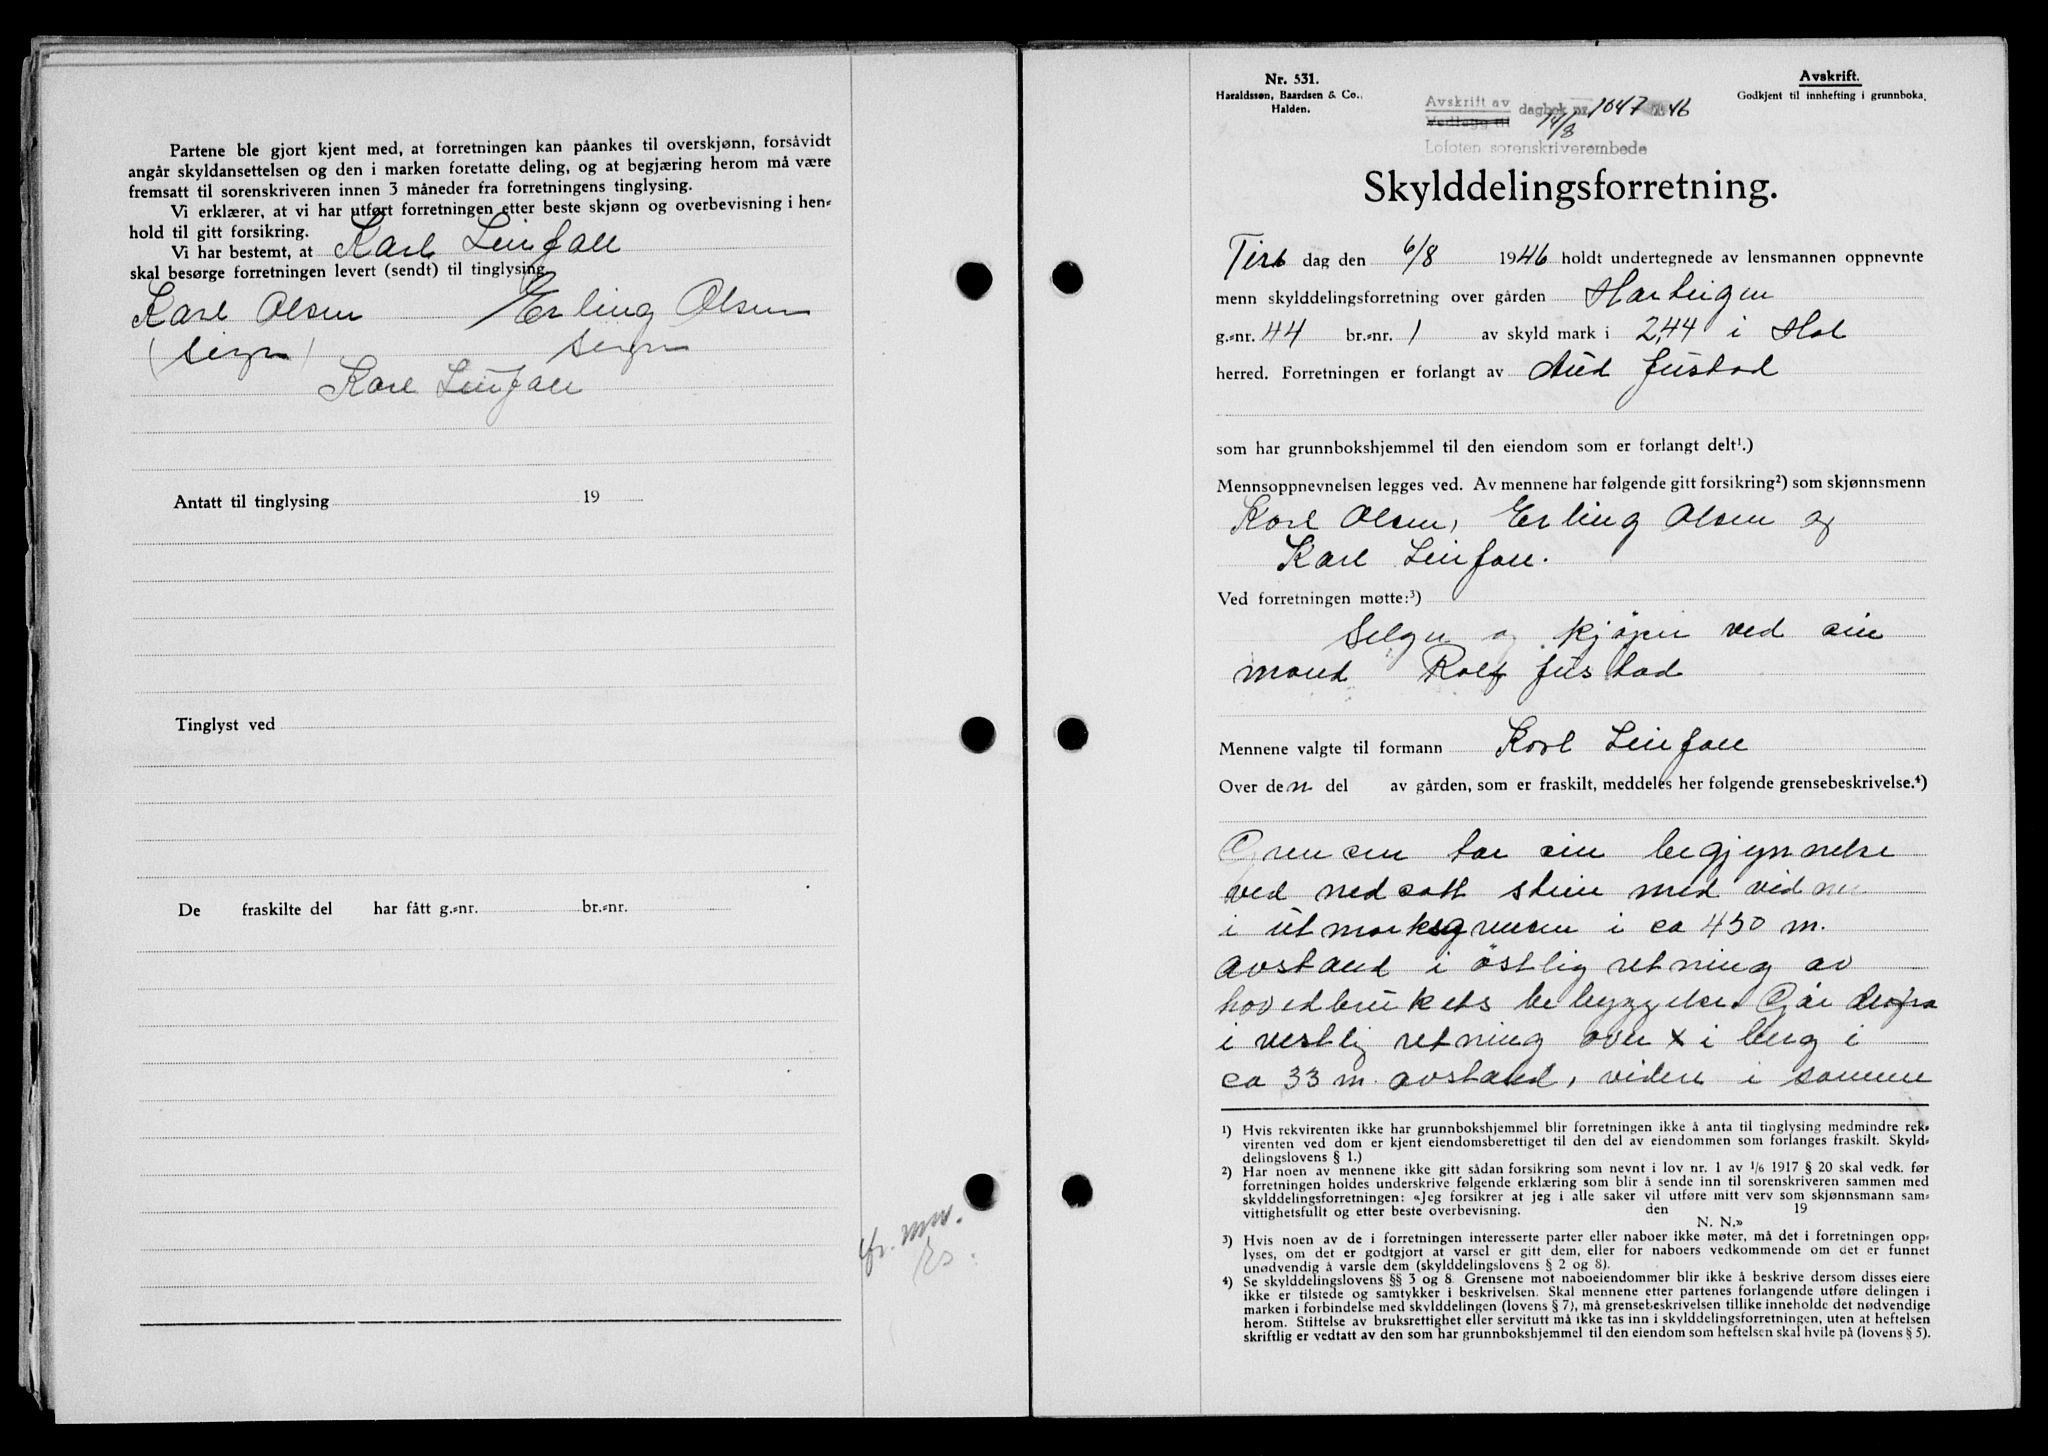 Partene ble gjort kjent med, at forretningen kan påankes til overskjønn, forsåvidt
angår skyldansettelsen og den i marken foretatte deling, og at begjæring herom må være
fremsatt til sorenskriveren innen 3 måneder fra forretningens tinglysing.
Vi erklærer, at vi har utført forretningen etter beste skjønn og overbevisning i hen-
hold til gitt forsikring.
Vi har bestemt, at Karl Leinfall
skal besørge forretningen levert (sendt) til tinglysing
Karl Olsen Erling Olsen
(sign) sign
Karl Leinfall
Antatt til tinglysing 19
Tinglyst ved
De fraskilte del har fått g.-nr. br.-nr.
Nr. 531.
Haraldssøn, Baardsen & Co.,
Halden.
Avskrift.
Godkjent til innhefting i grunnboka.
Avskrift av dagbok nr. 1047 1946
Vedlegg til 14/8
Lofoten sorenskriverembede
Skylddelingsforretning.
Tirs dag den 6/8 1946 holdt undertegnede av lensmannen oppnevnte
menn skylddelingsforretning over gården Harteigen
g.-nr. 44 br.-nr. 1 av skyld mark i 2,44 i Hol
herred. Forretningen er forlangt av Aud Justad
som har grunnbokshjemmel til den eiendom som er forlangt delt¹.)
Mennsoppnevnelsen legges ved. Av mennene har følgende gitt forsikring²) som skjønnsmenn
Karl Olsen, Erling Olsen og
Karl Leinfall.
Ved forretningen møtte:³)
Selger og kjöper ved sin
mand Rolf Justad
Mennene valgte til formann Karl Leinfall
Over den del av gården, som er fraskilt, meddeles her følgende grensebeskrivelse.⁴)
Grensen tar sin begjynnelse
ved nedsatt stein med vidner
i utmarksgrensen i ca 450 m.
avstand i östlig retning av
hovedbrukets bebyggelse. Går derfra
i vestlig retning over x i berg i
ca 33 m. avstand, videre i samme
¹) Hvis rekvirenten ikke har grunnbokshjemmel blir forretningen ikke å anta til tinglysing medmindre rek-
virenten ved dom er kjent eiendomsberettiget til den del av eiendommen som forlanges fraskilt. Skyld-
delingslovens § 1.)
²) Har noen av mennene ikke gitt sådan forsikring som nevnt i lov nr. 1 av 1/6 1917 § 20 skal vedk. før
forretningen holdes underskrive følgende erklæring som blir å sende inn til sorenskriveren sammen med
skylddelingsforretningen: «Jeg forsikrer at jeg i alle saker vil utføre mitt verv som skjønnsmann sam-
vittighetsfullt og etter beste overbevisning. den 19
N. N.»
³) Hvis noen av de i forretningen interesserte parter eller naboer ikke møter, må det i forretningen opp-
lyses, om det er godtgjort at varsel er gitt dem, eller for naboers vedkommende om det er funnet
unødvendig å varsle dem (skylddelingslovens § 2 og 8).
⁴) Se skylddelingslovens §§ 3 og 8. Grensene mot naboeiendommer blir ikke å beskrive dersom disses eiere
ikke er tilstede og samtykker i beskrivelsen. Skal mennene etter partenes forlangende utføre delingen i
marken i forbindelse med skylddelingen (lovens § 7), må grensebeskrivelsen tillike inneholde det nødvendige
herom. Stiftelse av bruksrettighet eller servitutt må ikke tas inn i skylddelingsforretningen, uten at heftelsen
skriftlig er vedtatt av den som har grunnbokshjemmel til den eiendom som heftelsen skal hvile på (lovens § 5).